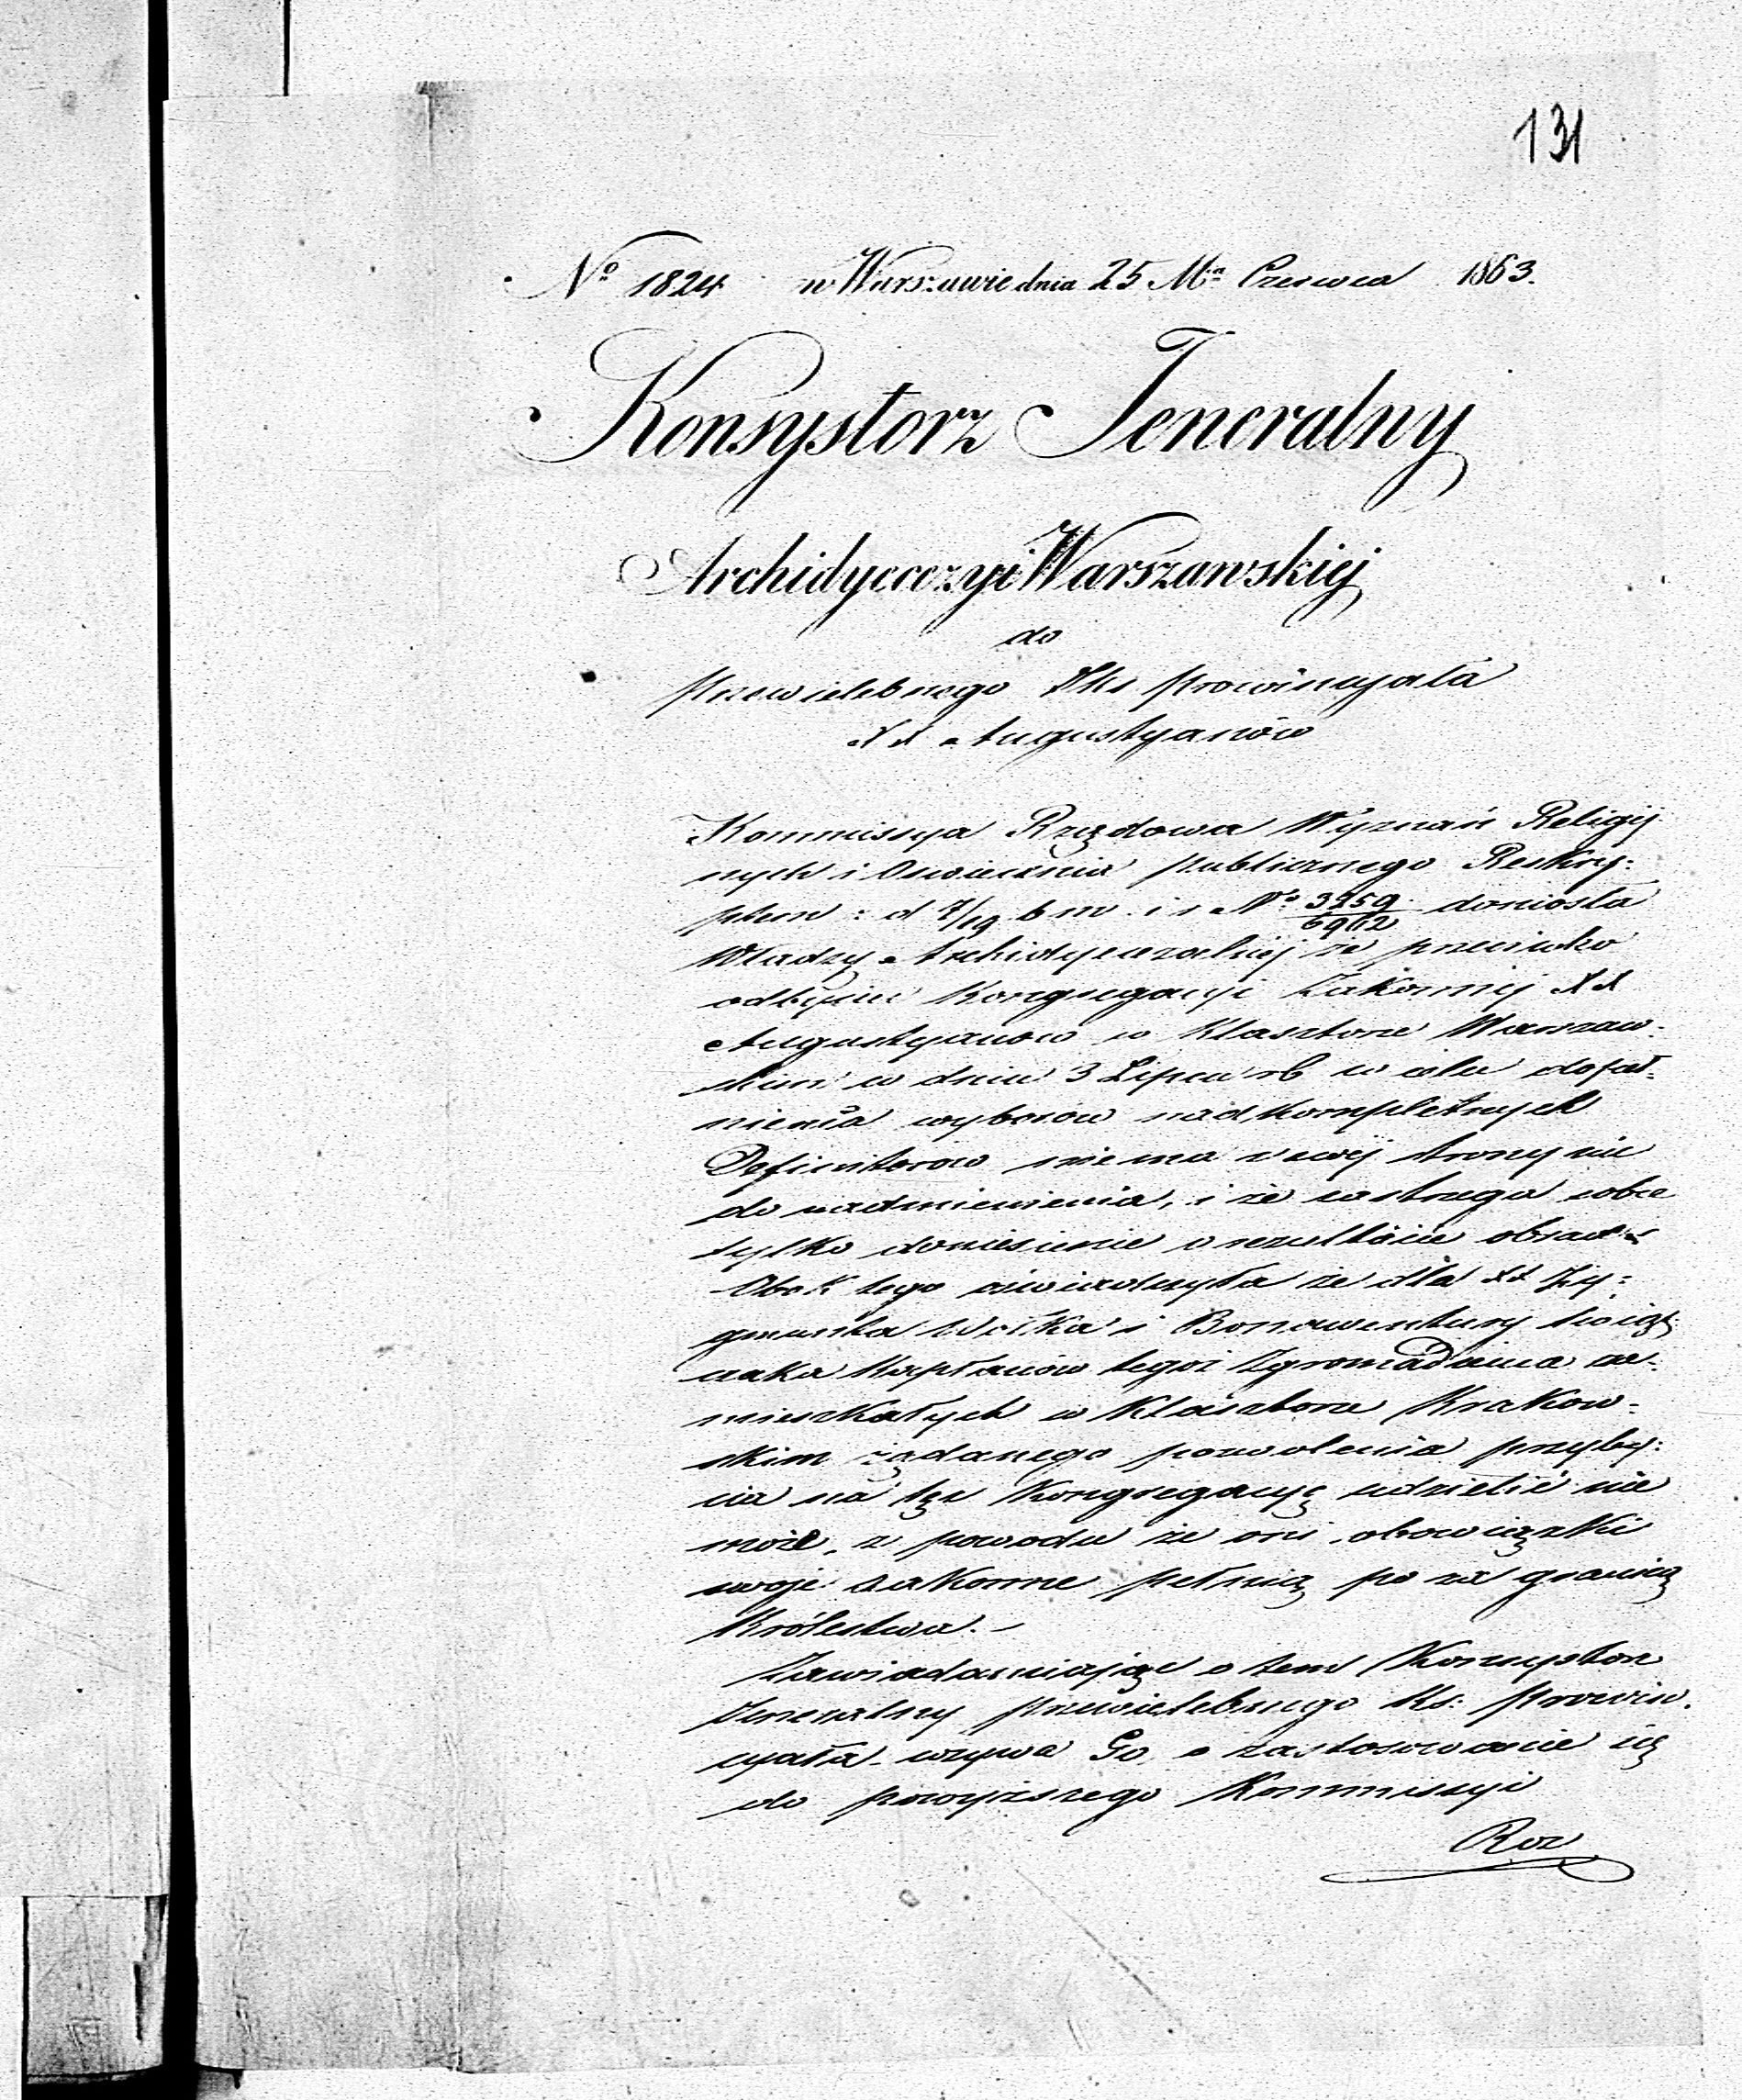 131
No 1824 w Warszawie dnia 25 Mca Czerwca 1863.
Konsystorz Jeneralny
Archidyecezyi Warszawskiej
do
Przewielebnego Jks Prowincyała
XX Augustyanów
Kommissya Rządowa Wyznań Religij
nych i Oswiecenia publicznego Reskry:
ptem : d 7/19 b m i r No 3259/6912 doniosła
Władzy Archidyecezalnej że przeciwko
odbyciu Kongregacyi Zakonnej XX
Augustyanów w Klasztorze Warszaw-
skim w dniu 3 Lipca rb w celu dopeł-
nienia wyborów nadkompletnych
Definitorów niema z swej strony nic
do nadmienienia, i że zastrzega sobie
tylko doniesienie o rezultacie obrad
Obok tego oświadczyła że dla XX Zy:
gmunta Wójtka i Bonawentury
Kapłanów tegoż Zgromadzenia za-
mieszkałych w Klasztorze Krakow-
skim żądanego pozwolenia przyby:
cia na tęż Kongregacyę udzielić nie
może, z powodu że oni obowiązki
swoje zakonne pełnią po za granicą
Królestwa. -
Zawiadamiając o tem Konsystorz
Jeneralny przewielebnego Ks: Prowin.
cyała - wzywa Go, o zastosowanie się
do powyższego Kommissyi
Roz